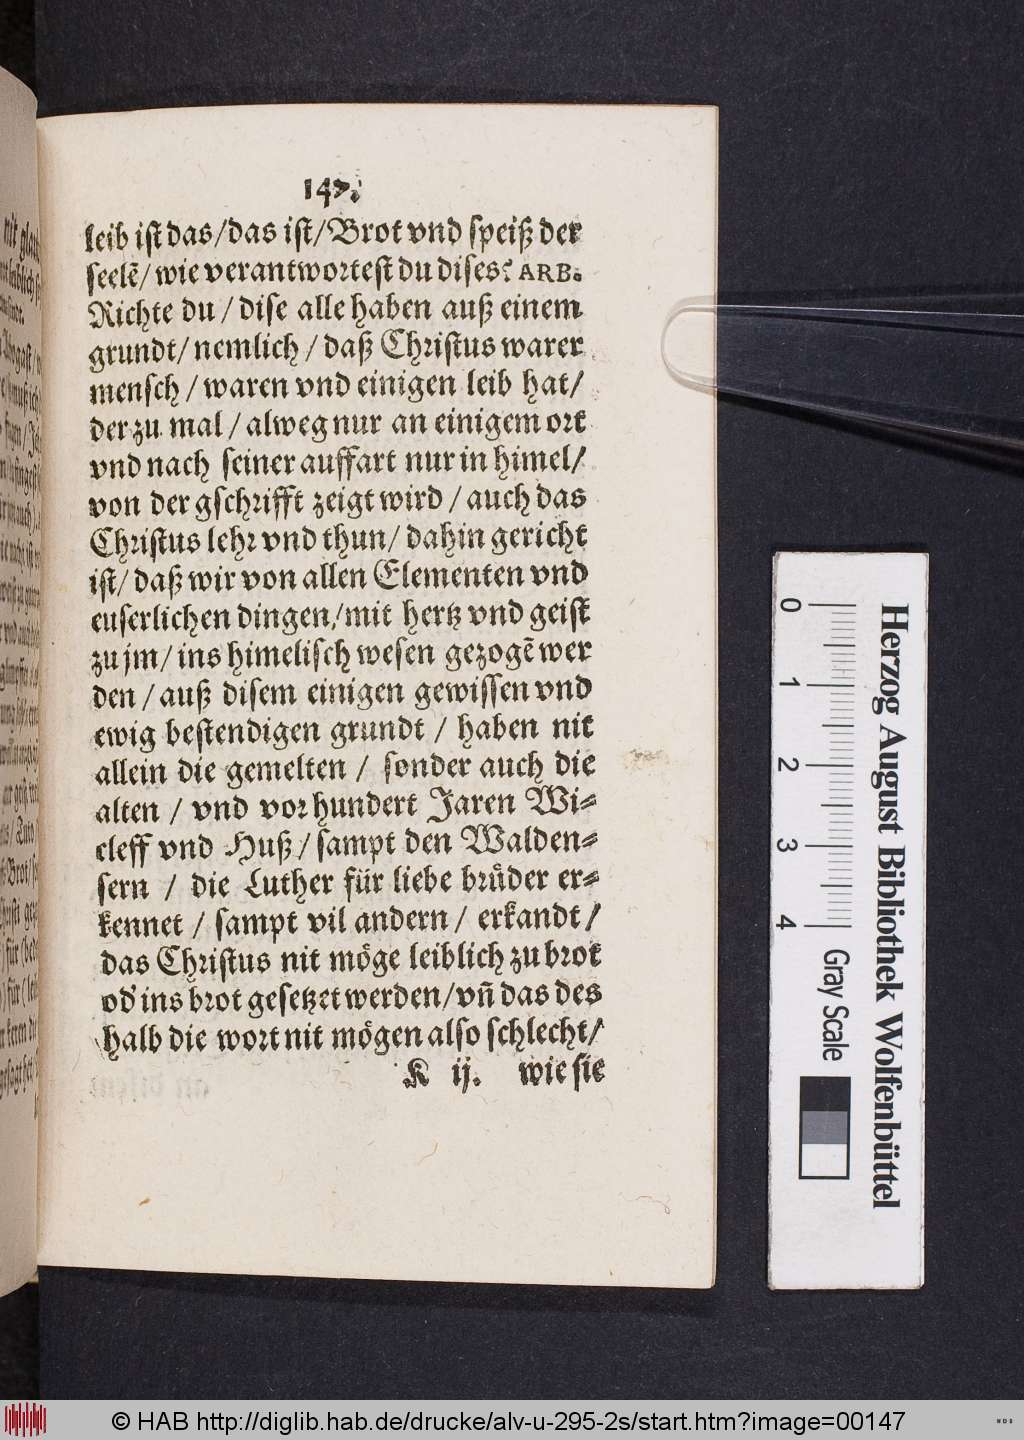 147.
leib ist das/das ist/Brot vnd speiß der
seelẽ/wie verantwortest du dises? ARB.
Richte du/dise alle haben auß einem
grundt/nemlich/daß Christus warer
mensch/waren vnd einigen leib hat/
der zu mal/alweg nur an einigem ort
vnd nach seiner auffart nur in himel/
von der gschrifft zeigt wird/auch das
Christus lehr vnd thun/dahin gericht
ist/daß wir von allen Elementen vnd
euserlichen dingen/mit hertz vnd geist
zu jm/ins himelisch wesen gezogẽ wer
den/auß disem einigen gewissen vnd
ewig bestendigen grundt/haben nit
allein die gemelten/sonder auch die
alten/vnd vor hundert Jaren Wi-
cleff vnd Huß/sampt den Walden-
sern/die Luther für liebe brůder er-
kennet/sampt vil andern/erkandt/
das Christus nit möge leiblich zu brot
od' ins brot gesetzet werden/vñ das des
halb die wort nit mögen also schlecht/
K ij. wie sie
0 1 2 3 4
Gray Scale
Herzog August Bibliothek Wolfenbüttel
© HAB http://diglib.hab.de/drucke/alv-u-295-2s/start.htm?image=00147